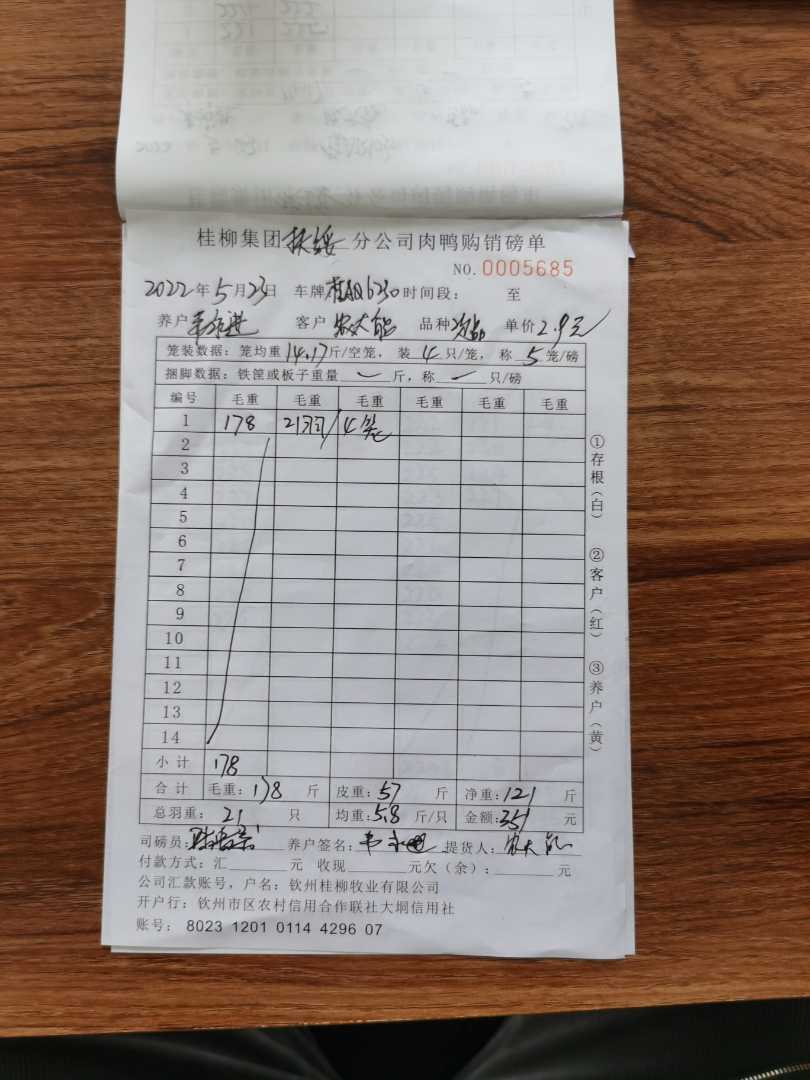 桂柳集团扶绥分公司肉鸭购销磅单
NO. 0005685
2022年5月23日 车牌桂AQ6230时间段： 至
养户 客户农大能 品种次品 单价2.9元
笼装数据：笼均重14.17斤/空笼，装4只/笼，称5笼/磅
捆脚数据：铁筐或板子重量 斤，称 只/磅
编号 毛重 毛重 毛重 毛重 毛重 毛重
1 178 21羽/4笼
2
3
4
5
6
7
8
9
10
11
12
13
14
小计 178
合计 毛重：178斤 皮重：57斤 净重：121斤
总羽重：21只 均重：5.8斤/只 金额：351元
司磅员： 养户签名： 提货人：农大能
付款方式：汇 元 收现 元欠（余）： 元
公司汇款账号，户名：钦州桂柳牧业有限公司
开户行：钦州市区农村信用合作联社大垌信用社
账号： 8023 1201 0114 4296 07
①存根（白） ②客户（红） ③养户（黄）